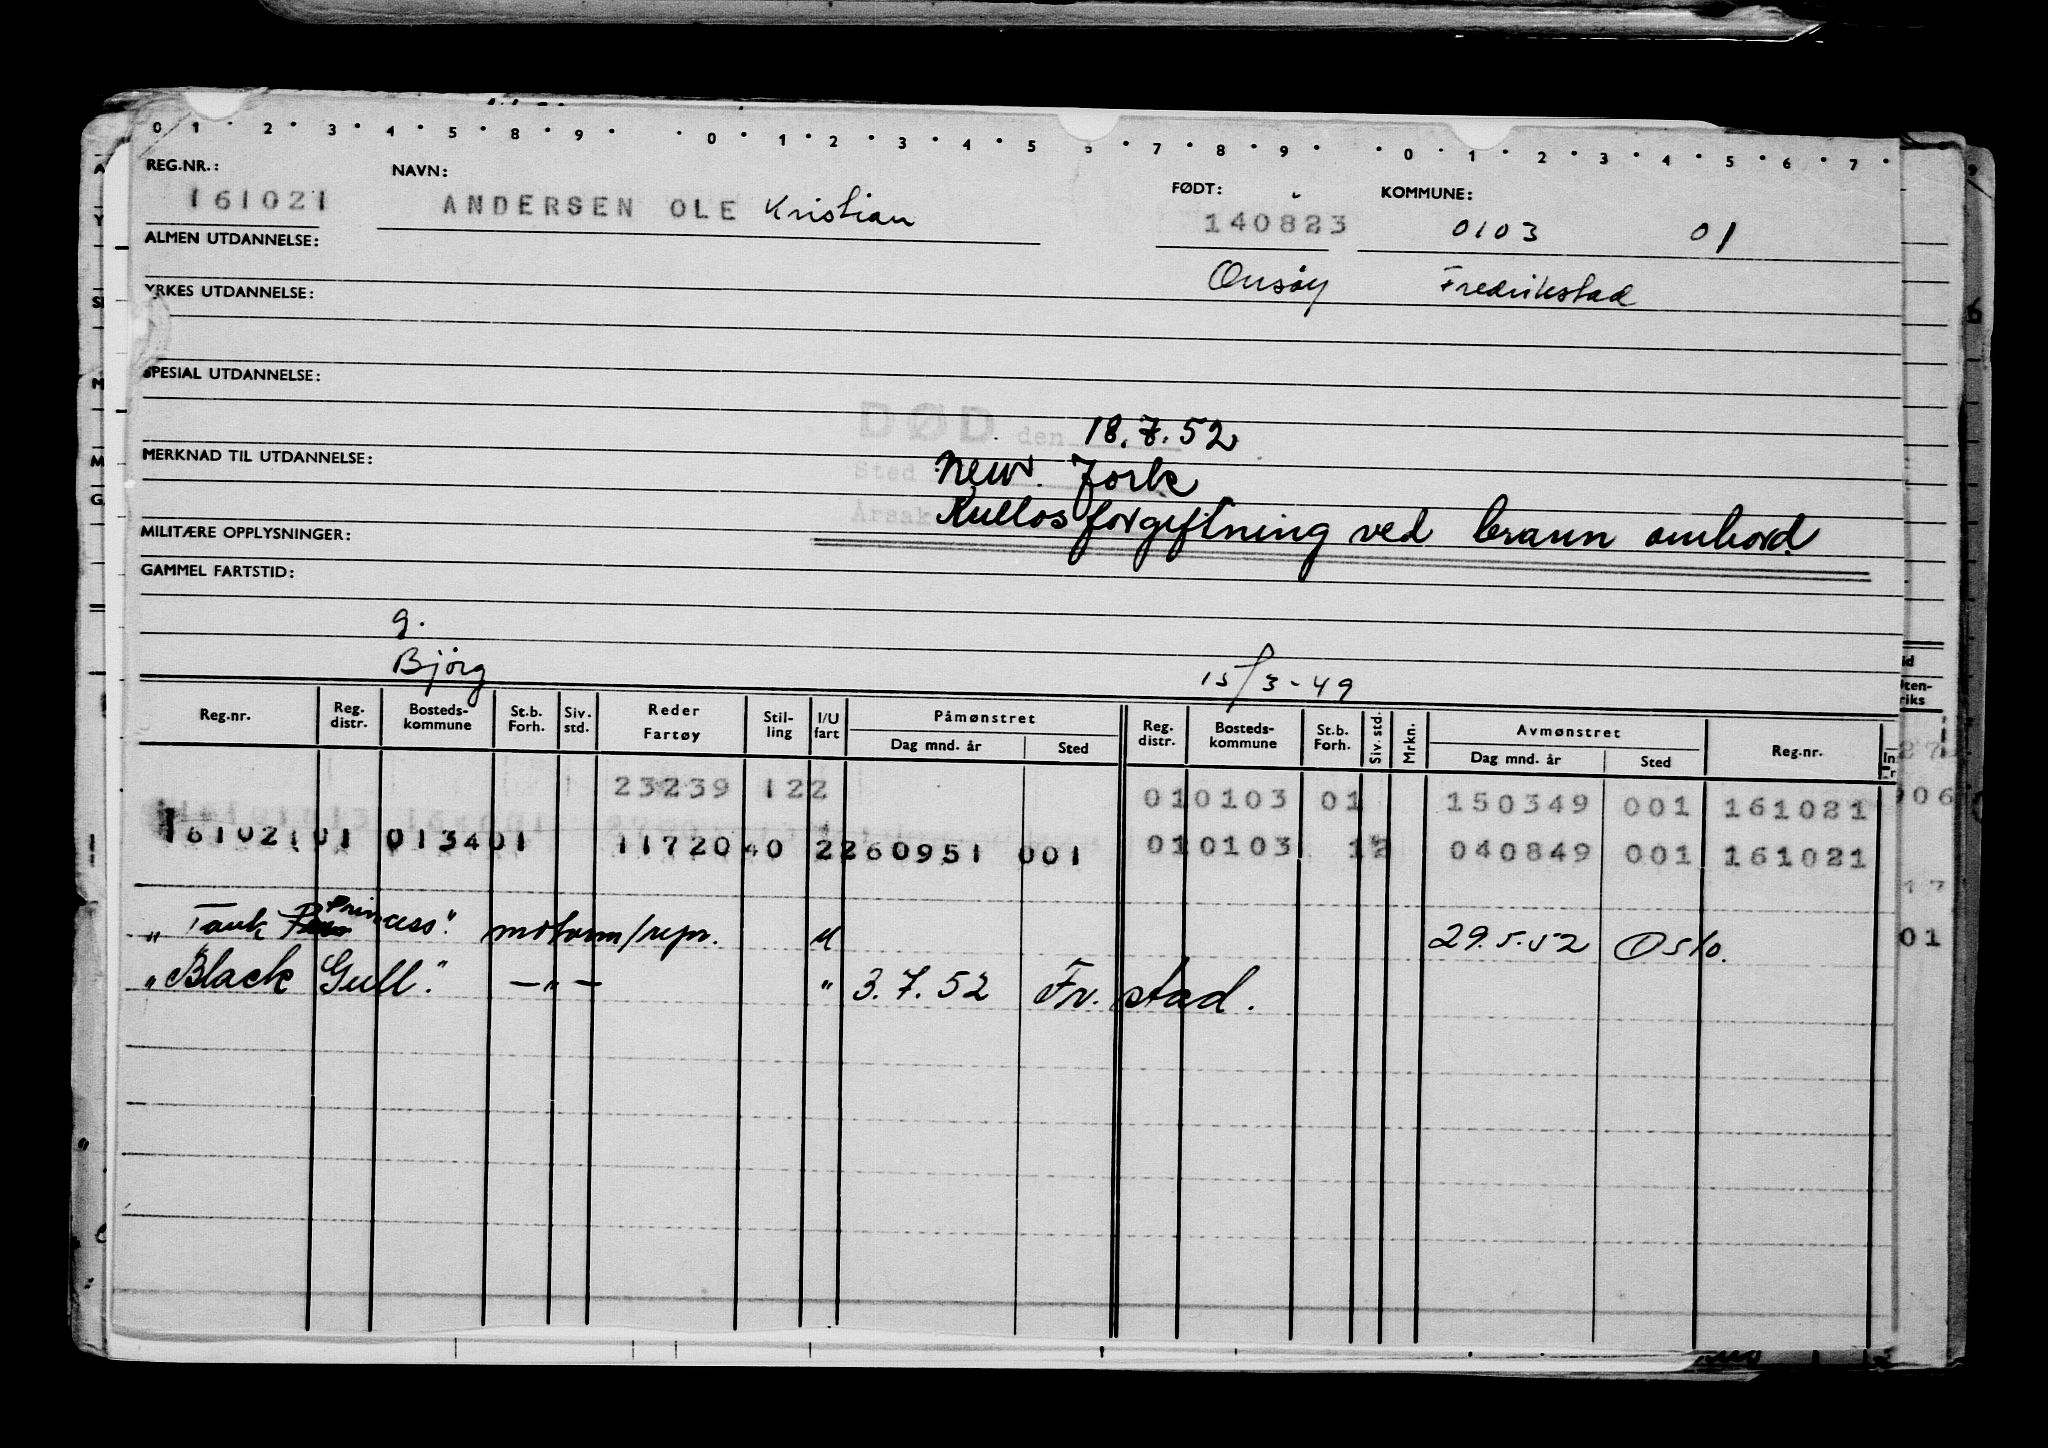 0 1 · 2 · 3 · 4 · 5 · 8 · 9 · · 0 · 1 · 2 · 3 · 4 · 5 · 7 · 8 · 9 · · 0 · 1 · 2 · 3 · 4 · 5 · 6 · 7 ·
REG.NR.: NAVN: FØDT: KOMMUNE:
161021 ANDERSEN OLE Kristian 140823 0103 01
ALMEN UTDANNELSE:
Onsöy Fredrikstad
YRKES UTDANNELSE:
SPESIAL UTDANNELSE:
DØD den 18.7.52
MERKNAD TIL UTDANNELSE:
Sted New. York
Årsak Kullosforgiftning ved brann ombord
MILITÆRE OPPLYSNINGER:
GAMMEL FARTSTID:
g.
Bjørg 15/3-49
Reg.nr. Reg. distr. Bosteds-kommune St.b. Forh. Siv. std. Reder Fartøy Stil-ling I/U fart Påmønstret Dag mnd. år Sted Reg. distr. Bosteds-kommune St.b. Forh. Siv. std. Mrkn. Avmønstret Dag mnd. år Sted Reg.nr.
23239 122 010103 01 150349 001 161021
161021 01 013401 11720 40 2 260951 001 010103 12 040849 001 161021
"Tank Princess". motorm/repr. U 29.5.52 Oslo.
"Black Gull". —"— " 3.7.52 Fr. stad.